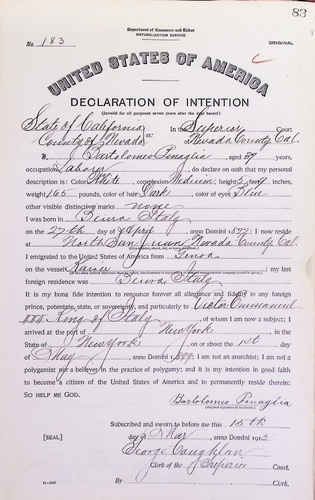 83
Department of Commerce and Labor
NATURALIZATION SERVICE
No. 183
ORIGINAL
UNITED STATES OF AMERICA
DECLARATION OF INTENTION
(Invalid for all purposes seven years after the date hereof)
State of California
County of Nevada
In the Superior Court
Nevada County Cal.
I, Bartolomeo Penaglia, aged
occupation Laborer, do declare on oath that my personal
description is: Color White, complexion Medium, height
weight 165 pounds, color of hair Dark, color of eyes Blue
other visible distinctive marks none
I was born in Italy
on the 27th day of April, anno Domini; I now reside
at North San Juan Nevada County Cal.
I emigrated to the United States of America from Genoa
on the vessel; my last
foreign residence was Italy
It is my bona fide intention to renounce forever all allegiance and fidelity to any foreign
prince, potentate, state, or sovereignty, and particularly to Victor Emmanuel
III King of Italy, of whom I am now a subject; I
arrived at the port of New York, in the
State of New York, on or about the 1st day
of May, anno Domini 1899; I am not an anarchist; I am not a
polygamist nor a believer in the practice of polygamy; and it is my intention in good faith
to become a citizen of the United States of America and to permanently reside therein:
SO HELP ME GOD.
Bartolomeo Penaglia
Subscribed and sworn to before me this 15th
[SEAL]
day of Mar, anno Domini 191
George Coughlan
Clerk of the Superior Court.